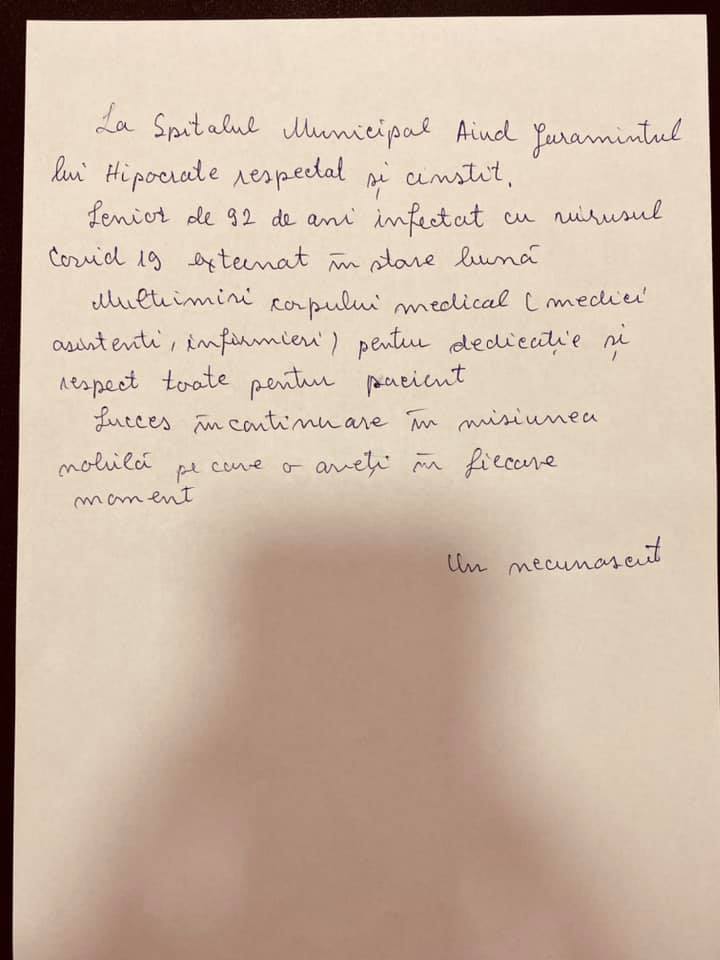 La Spitalul Municipal Aiud Juramintul
lui Hipocrate respectat și cinstit.
Senior de 92 de ani infectat cu virusul
Covid 19 externat în stare bună
Multumiri corpului medical (medici
asistenti, infirmieri) pentru dedicație și
respect toate pentru pacient
Succes în continuare în misiunea
nobilă pe care o aveți în fiecare
moment
Un necunascut